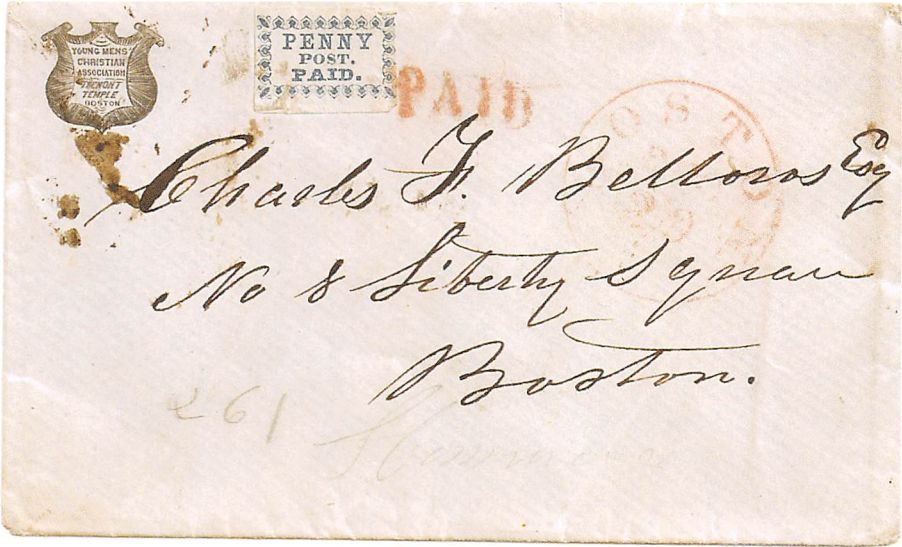 YOUNG MENS
CHRISTIAN
ASSOCIATION
TREMONT
TEMPLE
BOSTON
PENNY
POST.
PAID.
PAID
BOSTON
Charles F. Bellows Esq
No 8 Liberty Square
Boston.
261